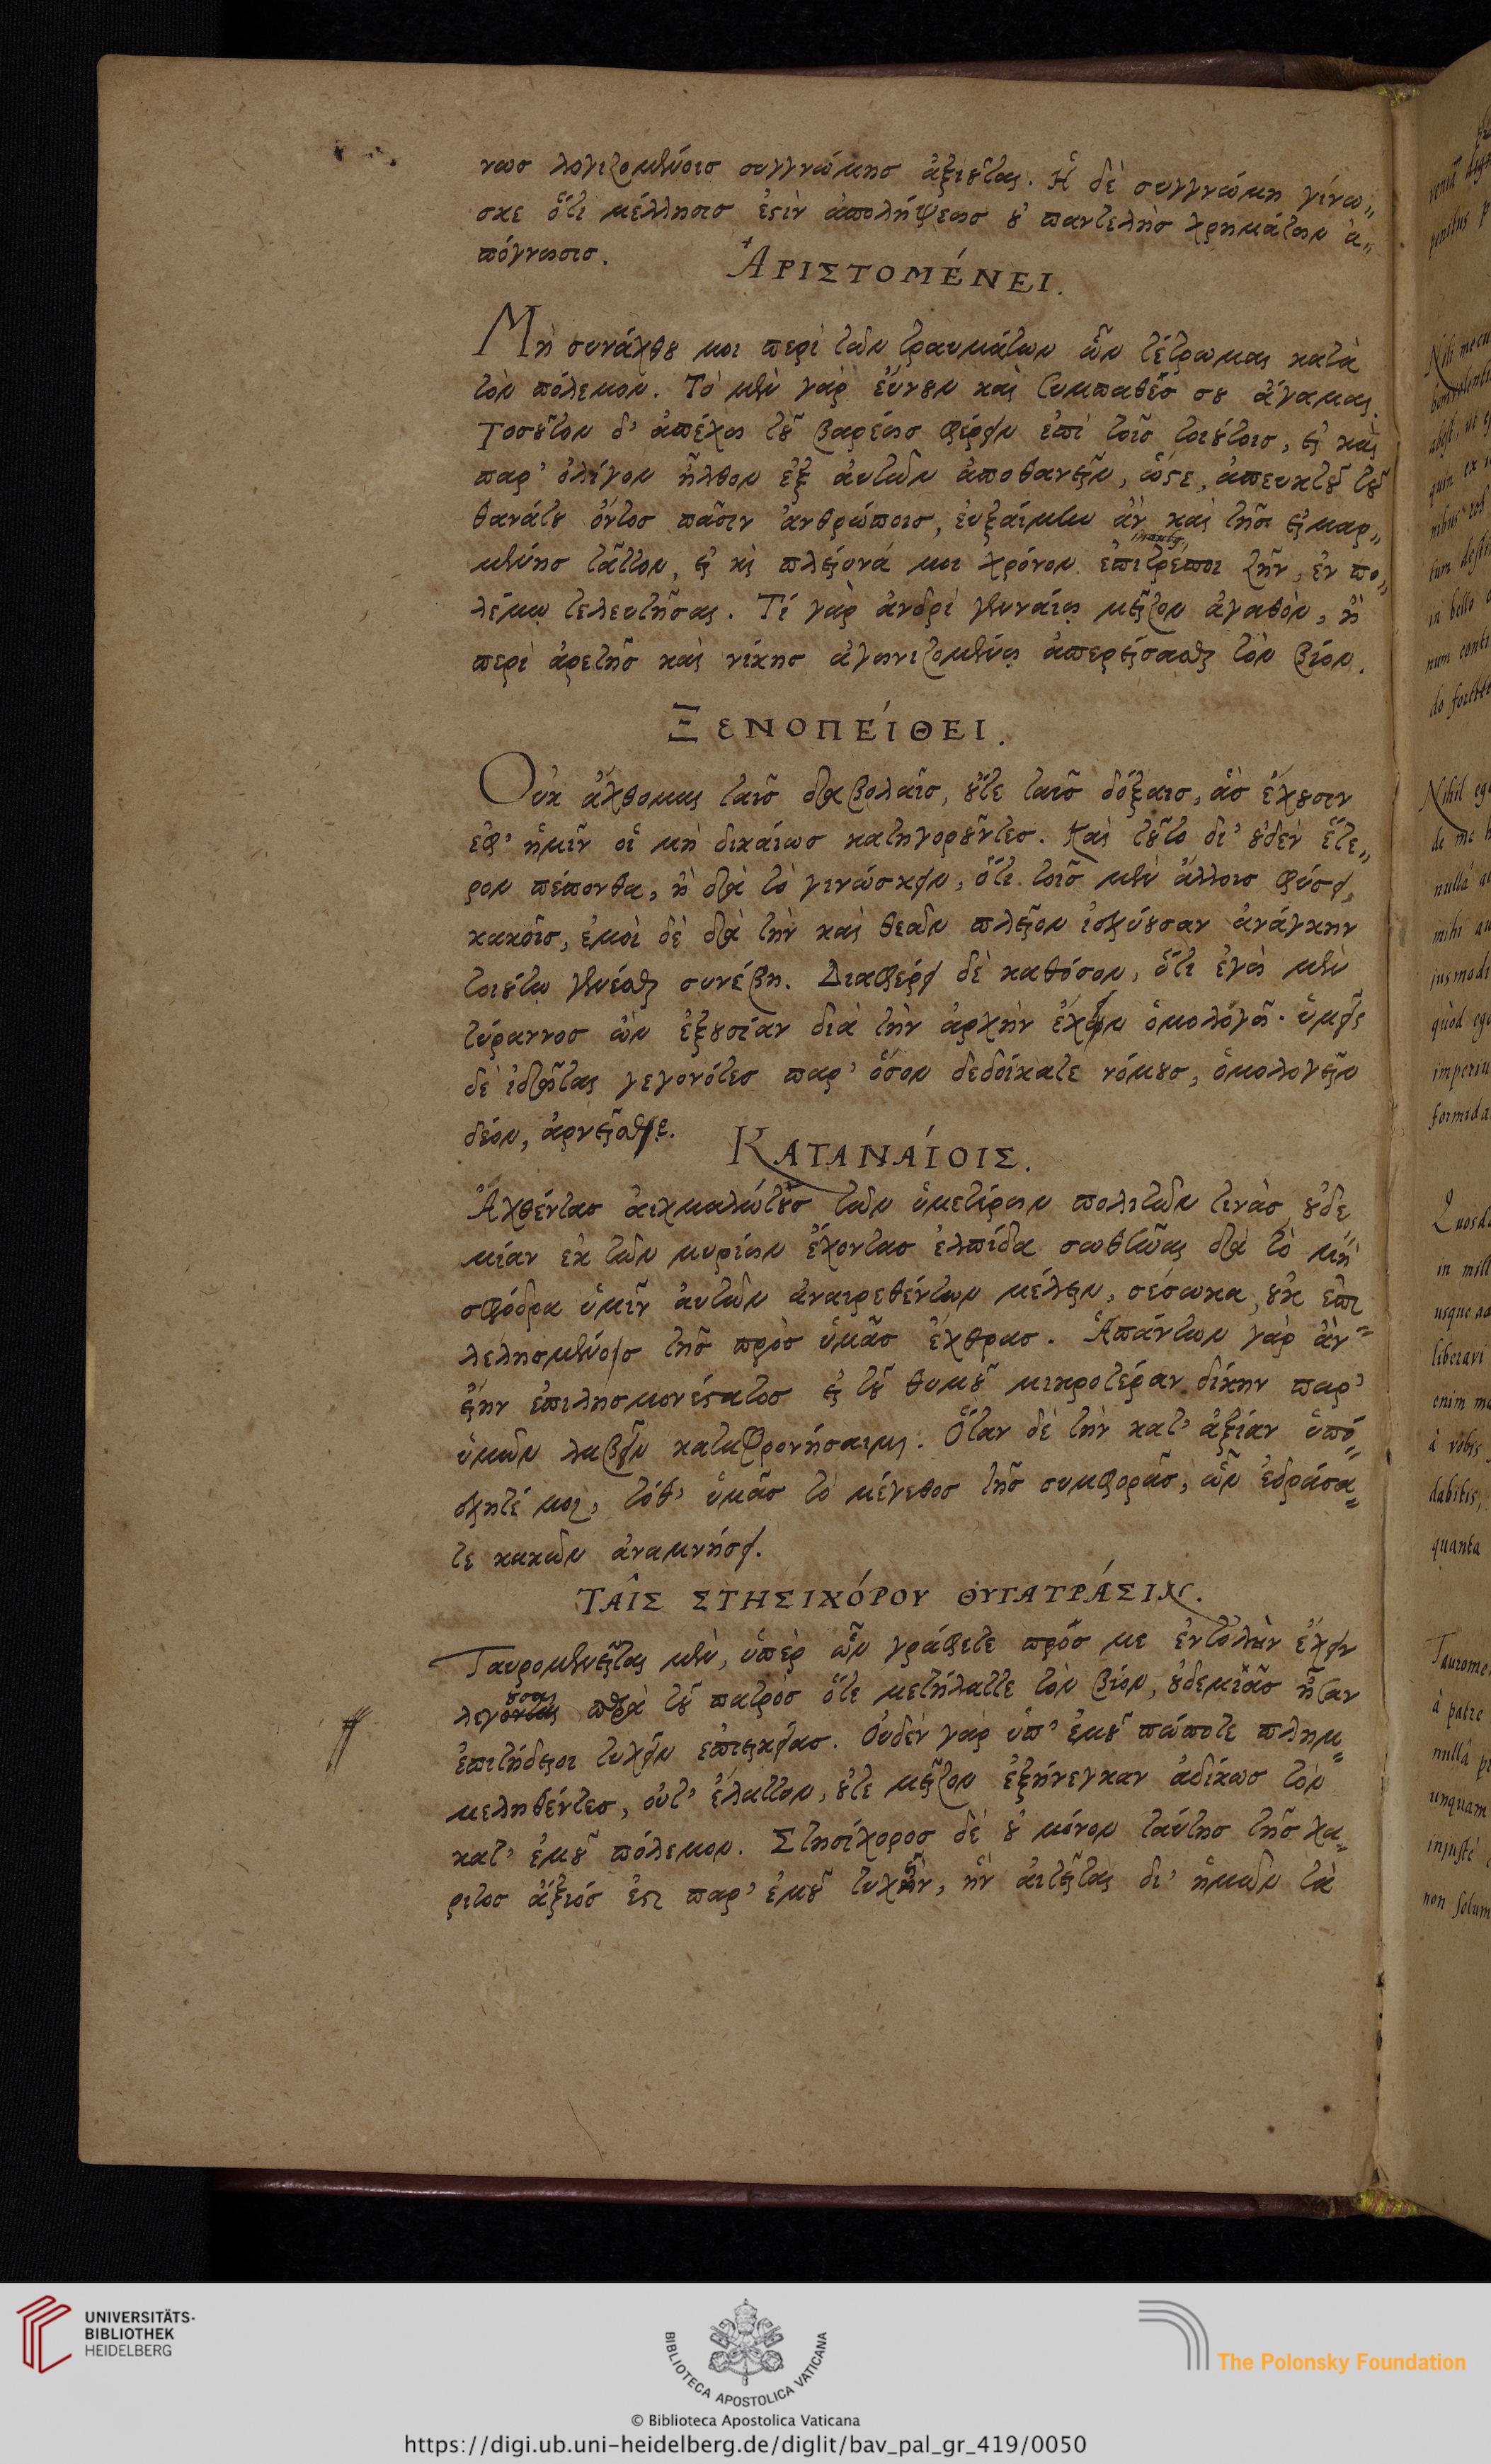 νως λογιζομένοις συγγνώμης ἀξιοῦται. Ἡ δὲ συγγνώμη γίνω„
σκε ὅτι μέλλησις ἐστὶν ἀπολήψεως οὐ παντελὴς χρημάτων ἀ„
πόγνωσις.
ἈΡΙΣΤΟΜΈΝΕΙ.
Μὴ συνάχθου μοι περὶ τῶν τραυμάτων ὧν τέτρωμαι κατὰ
τὸν πόλεμον. Τὸ μὲν γὰρ εὔνουν καὶ συμπαθές σου ἄγαμαι.
Τοσοῦτον δ' ἀπέχω τοῦ βαρέως φέρειν ἐπὶ τοῖς τοιούτοις, εἰ καὶ
παρ' ὀλίγον ἦλθον ἐξ αὐτῶν ἀποθανεῖν, ὥστε, ἀπευκτοῦ τοῦ
θανάτου ὄντος πᾶσιν ἀνθρώποις, εὐξαίμην ἂν καὶ τῆς εἱμαρ„
μένης θᾶττον, εἰ καὶ πλείονά μοι χρόνον ἐπιτρέποι ζῆν, ἐν πο„
λέμῳ τελευτῆσαι. Τί γὰρ ἀνδρὶ γενναίῳ μεῖζον ἀγαθὸν, ἢ
περὶ ἀρετῆς καὶ νίκης ἀγωνιζομένῳ ἀπερείσασθαι τὸν βίον.
ΞΕΝΟΠΕΊΘΕΙ.
Οὐκ ἄχθομαι ταῖς διαβολαῖς, οὔτε ταῖς δόξαις, ἃς ἔχουσιν
ἐφ' ἡμῖν οἱ μὴ δικαίως κατηγοροῦντες. Καὶ τοῦτο δι' οὐδὲν ἕτε„
ρον πέπονθα, ἢ διὰ τὸ γινώσκειν, ὅτι τοῖς μὲν ἄλλοις φύσει,
κακοῖς, ἐμοὶ δὲ διὰ τὴν καὶ θεῶν πλεῖον ἰσχύουσαν ἀνάγκην
τοιούτῳ γενέσθαι συνέβη. Διαφέρει δὲ καθόσον, ὅτι ἐγὼ μὲν
τύραννος ὢν ἐξουσίαν διὰ τὴν ἀρχὴν ἔχων ὁμολογῶ· ὑμεῖς
δὲ ἰδιῶται γεγονότες παρ' ὅσον δεδοίκατε νόμους, ὁμολογεῖν
δέον, ἀρνεῖσθε.
ΚΑΤΑΝΑΊΟΙΣ.
Ἀχθέντας αἰχμαλώτους τῶν ὑμετέρων πολιτῶν τινὰς, οὐδε
μίαν ἐκ τῶν μυρίων ἔχοντας ἐλπίδα σωθῆναι διὰ τὸ μὴ
σφόδρα ὑμῖν αὐτῶν ἀναιρεθέντων μέλειν, σέσωκα, οὐκ ἐπι
λελησμένος τῆς πρὸς ὑμᾶς ἔχθρας. Ἁπάντων γὰρ ἂν
εἴην ἐπιλησμονέστατος εἰ τοῦ θυμοῦ μικροτέραν δίκην παρ'
ὑμῶν λαβεῖν καταφρονήσαιμι. Ὅταν δὲ τὴν κατ' ἀξίαν ὑπό
σχητέ μοι, τόθ' ὑμᾶς τὸ μέγεθος τῆς συμφορᾶς, ὧν ἐδράσα
τε κακῶν ἀναμνήσει.
ΤΑῖΣ ΣΤΗΣΙΧΌΡΟΥ ΘΥΓΑΤΡΆΣΙΝ.
Ταυρομενεῖται μὲν, ὑπὲρ ὧν γράφετε πρός με ἐντολὴν ἔχειν
λεγούσαι παρὰ τοῦ πατρὸς ὅτε μετήλαττε τὸν βίον, οὐδεμιᾶς ἦσαν
ἐπιτήδειοι τυχεῖν ἐπιεικείας. Οὐδὲν γὰρ ὑπ' ἐμοῦ πώποτε πλημ
μεληθέντες, οὔτ' ἔλαττον, οὔτε μεῖζον ἐξήνεγκαν ἀδίκως τὸν
κατ' ἐμοῦ πόλεμον. Στησίχορος δὲ οὐ μόνον ταύτης τῆς χά
ριτος ἄξιός ἐστι παρ' ἐμοῦ τυχεῖν, ἣν αἰτεῖται δι' ἡμῶν τὰ
UNIVERSITÄTS-
BIBLIOTHEK
HEIDELBERG
BIBLIOTECA APOSTOLICA VATICANA
The Polonsky Foundation
© Biblioteca Apostolica Vaticana
https://digi.ub.uni-heidelberg.de/diglit/bav_pal_gr_419/0050